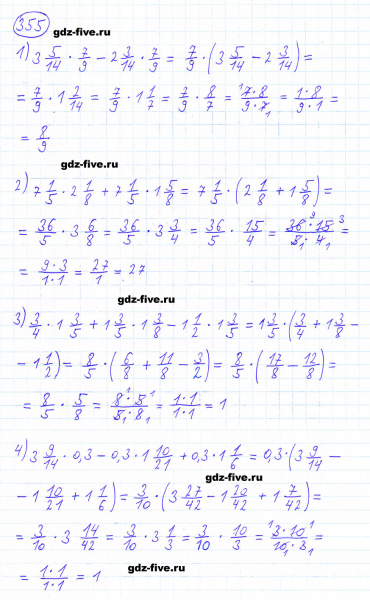 355
gdz-five.ru
1) 3 5/14 · 7/9 − 2 3/14 · 7/9 = 7/9 · (3 5/14 − 2 3/14) =
= 7/9 · 1 2/14 = 7/9 · 1 1/7 = 7/9 · 8/7 = 7·8/9·7 = 1·8/9·1 =
= 8/9
gdz-five.ru
2) 7 1/5 · 2 1/8 + 7 1/5 · 1 5/8 = 7 1/5 · (2 1/8 + 1 5/8) =
= 36/5 · 3 6/8 = 36/5 · 3 3/4 = 36/5 · 15/4 = 36·15/5·4 =
= 9·3/1·1 = 27/1 = 27
gdz-five.ru
3) 3/4 · 1 3/5 + 1 3/5 · 1 3/8 − 1 1/2 · 1 3/5 = 1 3/5 · (3/4 + 1 3/8 −
− 1 1/2) = 8/5 · (6/8 + 11/8 − 3/2) = 8/5 · (17/8 − 12/8) =
= 8/5 · 5/8 = 8·5/5·8 = 1·1/1·1 = 1
4) 3 9/14 · 0,3 − 0,3 · 1 10/21 + 0,3 · 1 1/6 = 0,3 · (3 9/14 −
gdz-five.ru
− 1 10/21 + 1 1/6) = 3/10 · (3 27/42 − 1 20/42 + 1 7/42) =
= 3/10 · 3 14/42 = 3/10 · 3 1/3 = 3/10 · 10/3 = 3·10/10·3 =
= 1·1/1·1 = 1
gdz-five.ru